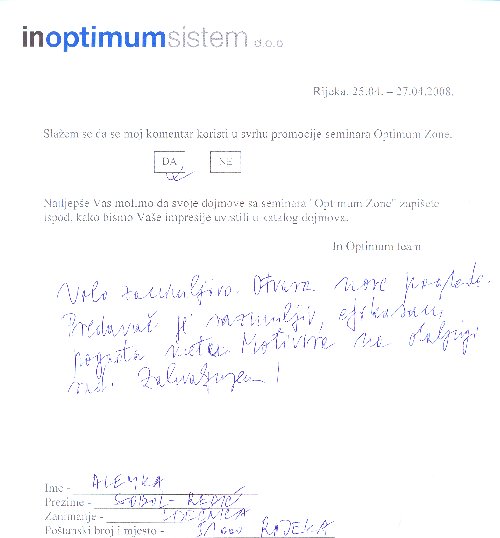 inoptimumsistem d.o.o
Rijeka, 25.04. – 27.04.2008.
Slažem se da se moj komentar koristi u svrhu promocije seminara Optimum Zone.
DA NE
Najljepše Vas molimo da svoje dojmove sa seminara "Optimum Zone" zapišete
ispod, kako bismo Vaše impresije uvrstili u katalog dojmova.
In Optimum team
Vrlo zanimljivo. Otvara nove poglede.
Predavač je razumljiv, efikasan,
pogađa metu. Motivira na daljnji
rad. Zahvaljujem!
Ime - ALEMKA
Prezime - SOBOL-
Zanimanje -
Poštanski broj i mjesto - 51000 RIJEKA